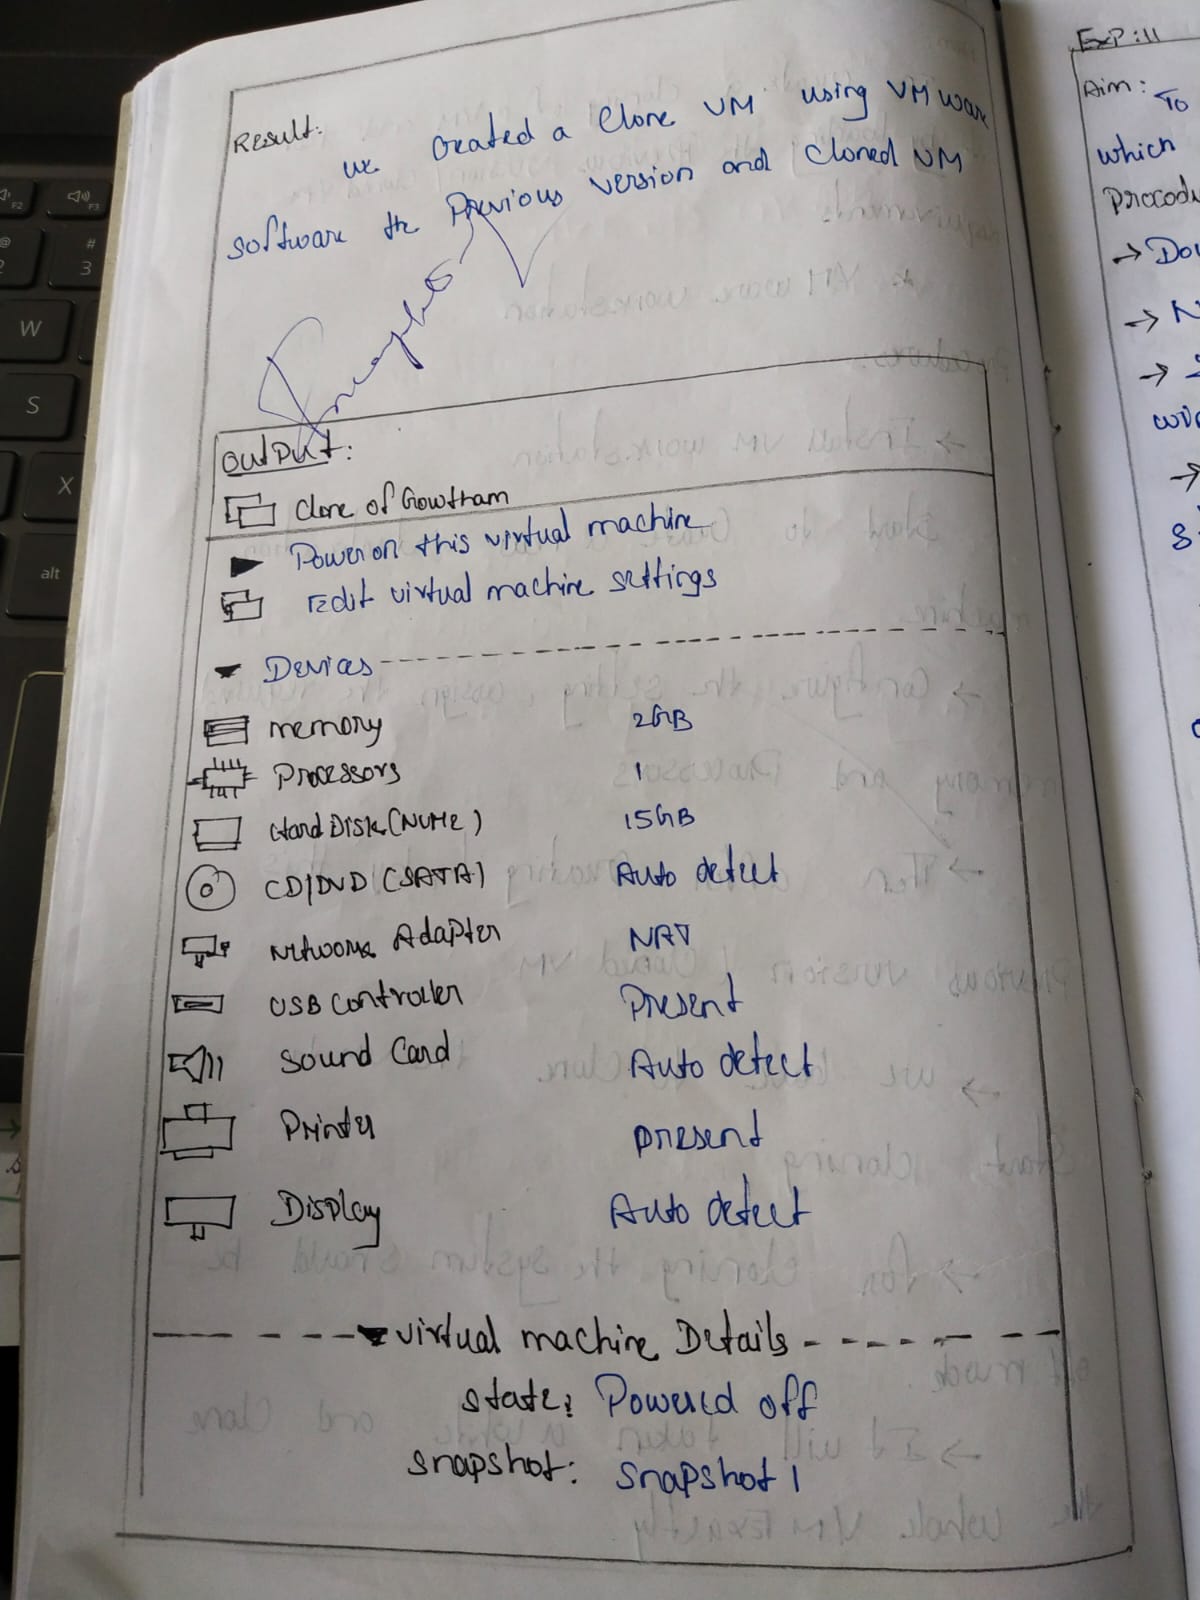 Result:
we created a Clone VM using VM ware
software the Previous version and cloned VM
Output:
Clone of Gowtham
Power on this virtual machine
Edit virtual machine settings
Devices
memory 2GB
Processors 1
Hard Disk (NVMe) 15GB
CD/DVD (SATA) Auto detect
Network Adapter NAT
USB Controller Present
Sound Card Auto detect
Printer present
Display Auto detect
virtual machine Details
state: Powered off
snapshot: snapshot 1
EXP:11
Aim: To
which
→ Dow
F2
F3
@
2
#
3
W
S
X
alt